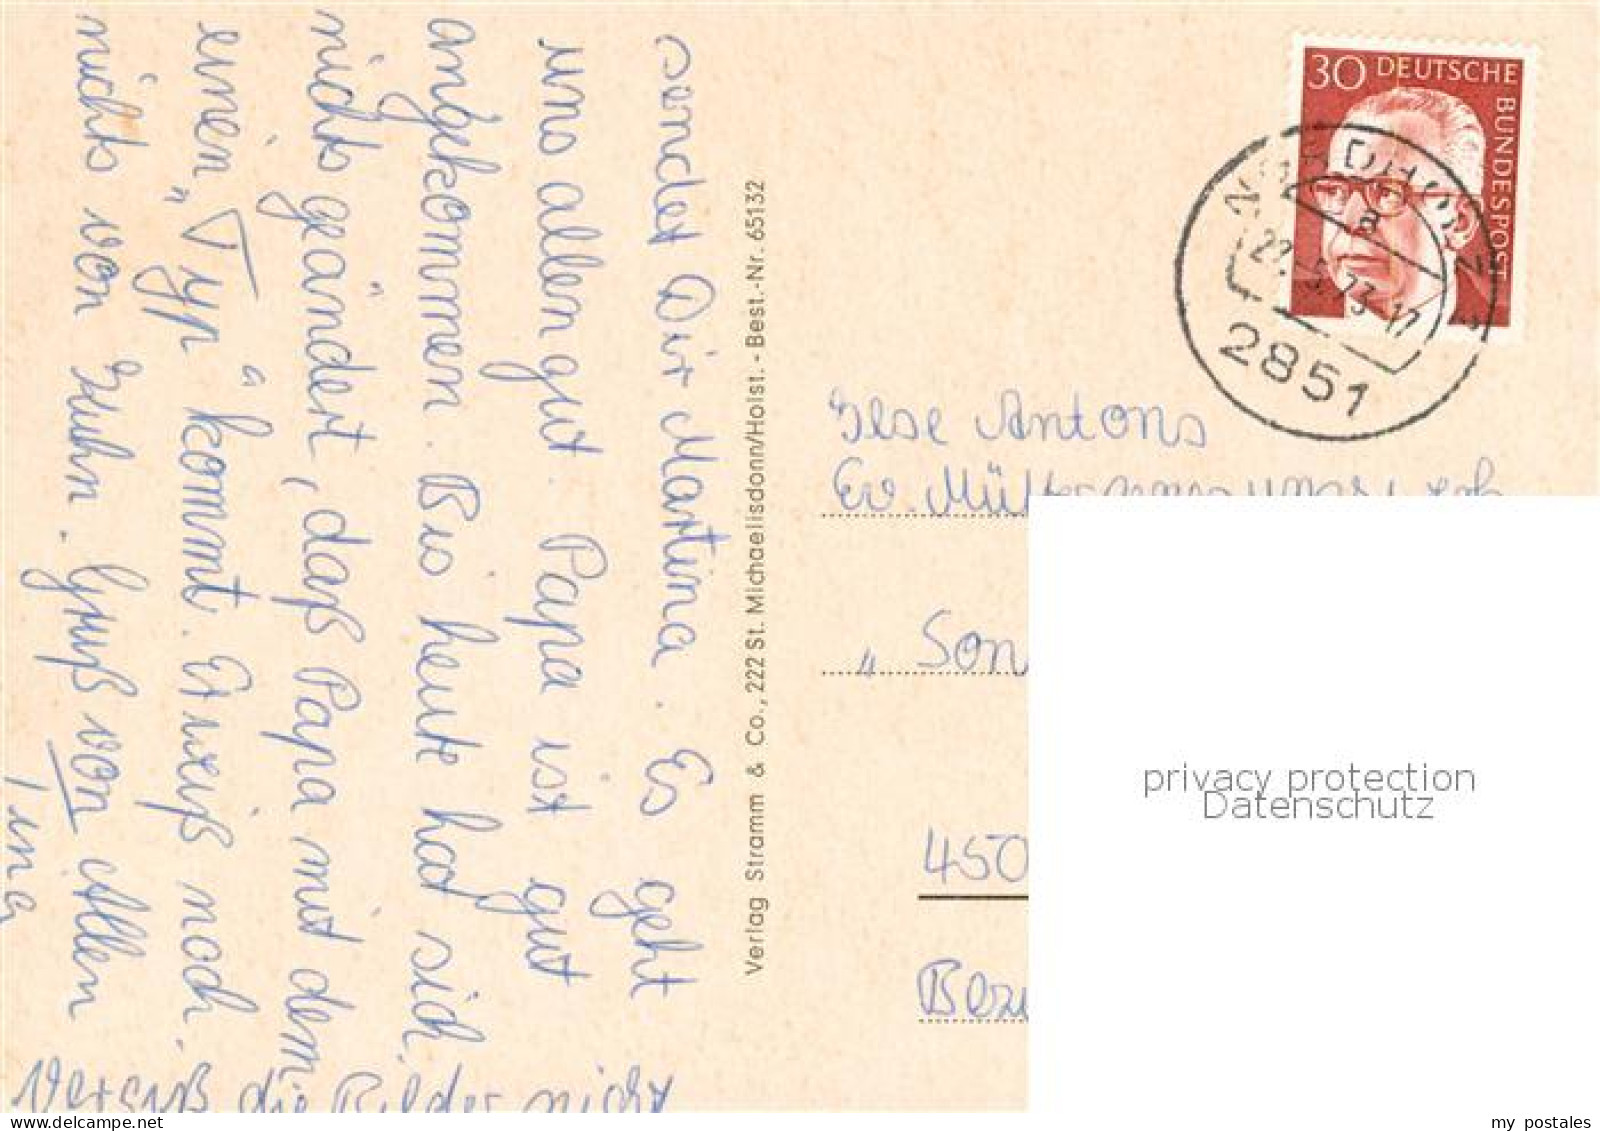 sendet Dir Martina. Es geht
uns allen gut. Papa ist gut
angekommen. Bis heute hat sich
nichts geändert, daß Papa mit dem
einen „Typ“ kommt. Er weiß noch
nichts von Kuhn. Gruß von Allen
Tina
Vergiß die Bilder nicht
Verlag Stramm & Co., 222 St. Michaelisdonn/Holst. - Best.-Nr. 65132
30 DEUTSCHE BUNDESPOST
NORDHOLZ
a
73-17
2851
Ilse Antons
Ev.
„Son
450
Bez
privacy protection
Datenschutz
www.delcampe.net
my_postales